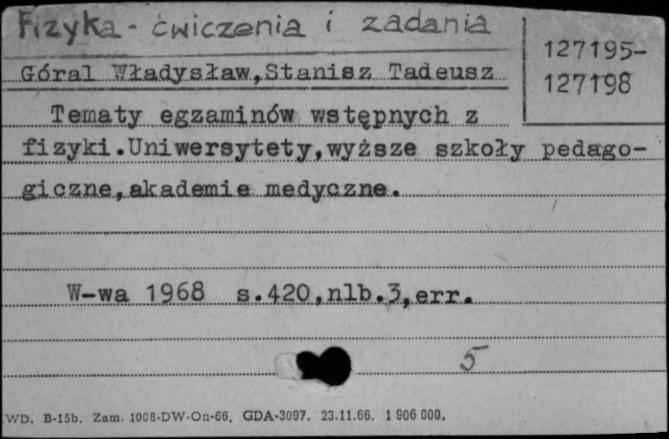 Fizyka - ćwiczenia i zadania
127195-
127198
Góral Władysław,Stanisz Tadeusz
Tematy egzaminów wstępnych z
fizyki.Uniwersytety,wyższe szkoły pedago-
giczne,akademie medyczne.
W-wa 1968 s.420,nlb.3,err.
5
WD. B-15b. Zam. 1008-DW-On-66. GDA-3097. 23.11.66. 1 906 000.